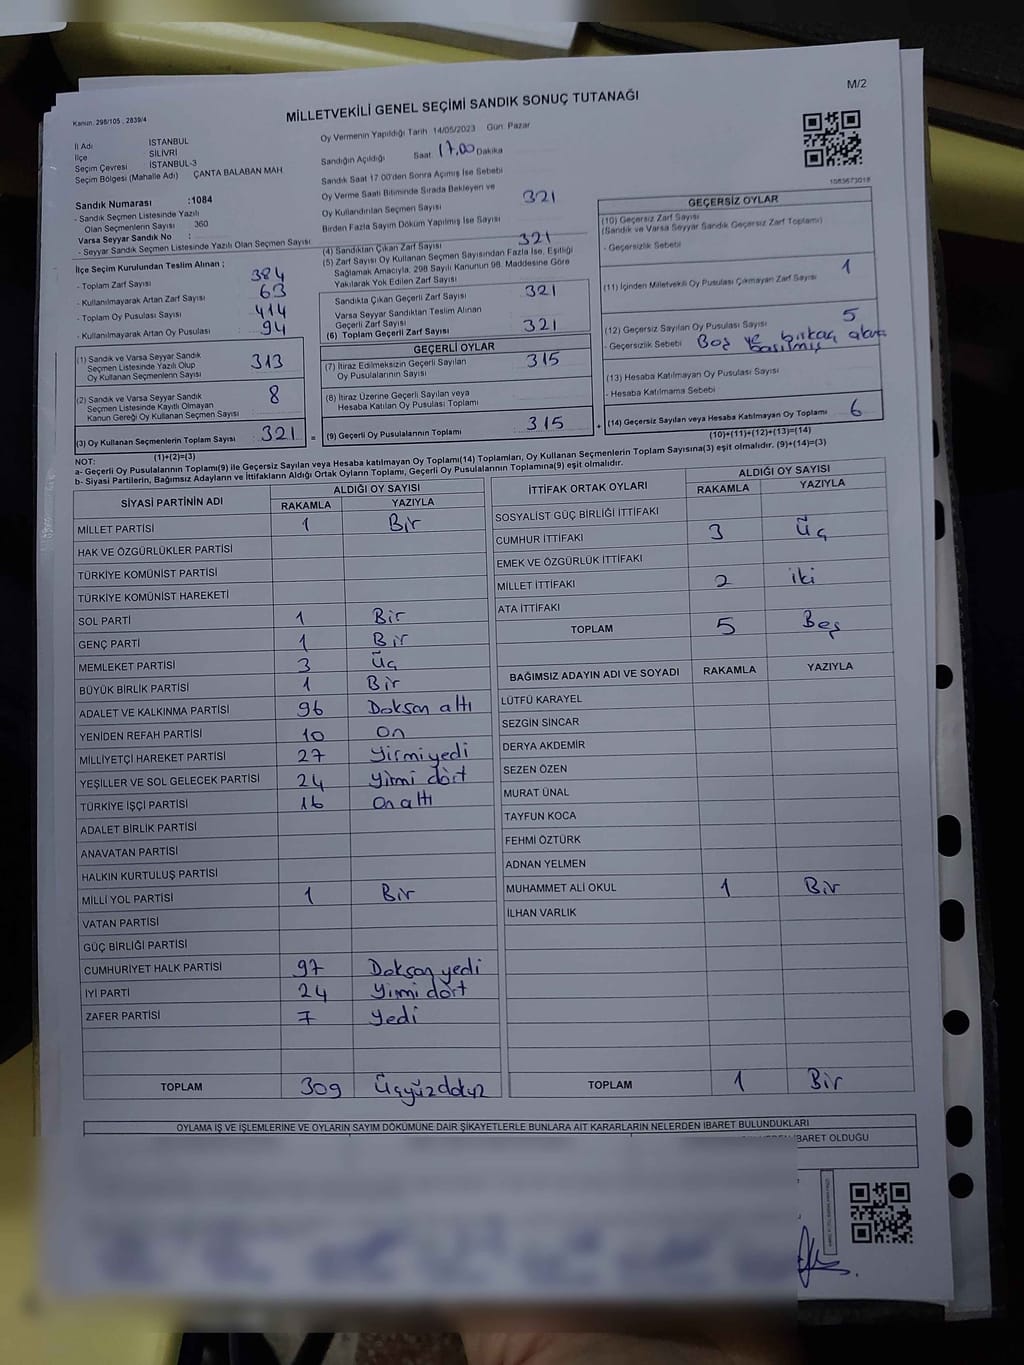 M/2
Kanun. 298/105 , 2839/4
MİLLETVEKİLİ GENEL SEÇİMİ SANDIK SONUÇ TUTANAĞI
İl Adı İSTANBUL
İlçe SİLİVRİ
Seçim Çevresi İSTANBUL-3
Seçim Bölgesi (Mahalle Adı) ÇANTA BALABAN MAH
Sandık Numarası :1084
- Sandık Seçmen Listesinde Yazılı
Olan Seçmenlerin Sayısı 360
Varsa Seyyar Sandık No :
- Seyyar Sandık Seçmen Listesinde Yazılı Olan Seçmen Sayısı
İlçe Seçim Kurulundan Teslim Alınan ;
- Toplam Zarf Sayısı 384
- Kullanılmayarak Artan Zarf Sayısı 63
- Toplam Oy Pusulası Sayısı 414
- Kullanılmayarak Artan Oy Pusulası 94
(1) Sandık ve Varsa Seyyar Sandık
Seçmen Listesinde Yazılı Olup
Oy Kullanan Seçmenlerin Sayısı 313
(2) Sandık ve Varsa Seyyar Sandık
Seçmen Listesinde Kayıtlı Olmayan
Kanun Gereği Oy Kullanan Seçmen Sayısı 8
(3) Oy Kullanan Seçmenlerin Toplam Sayısı 321 =
(1)+(2)=(3)
Oy Vermenin Yapıldığı Tarih 14/05/2023 Gün: Pazar
Sandığın Açıldığı Saat 17.00 Dakika
Sandık Saat 17:00'den Sonra Açılmış İse Sebebi
Oy Verme Saati Bitiminde Sırada Bekleyen ve
Oy Kullandırılan Seçmen Sayısı 321
Birden Fazla Sayım Döküm Yapılmış İse Sayısı
(4) Sandıktan Çıkan Zarf Sayısı 321
(5) Zarf Sayısı Oy Kullanan Seçmen Sayısından Fazla İse, Eşitliği
Sağlamak Amacıyla, 298 Sayılı Kanunun 98. Maddesine Göre
Yakılarak Yok Edilen Zarf Sayısı
Sandıkta Çıkan Geçerli Zarf Sayısı 321
Varsa Seyyar Sandıktan Teslim Alınan
Geçerli Zarf Sayısı
(6) Toplam Geçerli Zarf Sayısı 321
GEÇERLİ OYLAR
(7) İtiraz Edilmeksizin Geçerli Sayılan
Oy Pusulalarının Sayısı 315
(8) İtiraz Üzerine Geçerli Sayılan veya
Hesaba Katılan Oy Pusulası Toplamı
(9) Geçerli Oy Pusulalarının Toplamı 315 +
1583673018
GEÇERSİZ OYLAR
(10) Geçersiz Zarf Sayısı
(Sandık ve Varsa Seyyar Sandık Geçersiz Zarf Toplamı)
- Geçersizlik Sebebi
(11) İçinden Milletvekili Oy Pusulası Çıkmayan Zarf Sayısı 1
(12) Geçersiz Sayılan Oy Pusulası Sayısı 5
- Geçersizlik Sebebi Boş ve birkaç alana
basılmış
(13) Hesaba Katılmayan Oy Pusulası Sayısı
- Hesaba Katılmama Sebebi
(14) Geçersiz Sayılan veya Hesaba Katılmayan Oy Toplamı 6
(10)+(11)+(12)+(13)=(14)
NOT:
a- Geçerli Oy Pusulalarının Toplamı(9) ile Geçersiz Sayılan veya Hesaba katılmayan Oy Toplamı(14) Toplamları, Oy Kullanan Seçmenlerin Toplam Sayısına(3) eşit olmalıdır. (9)+(14)=(3)
b- Siyasi Partilerin, Bağımsız Adayların ve İttifakların Aldığı Ortak Oyların Toplamı, Geçerli Oy Pusulalarının Toplamına(9) eşit olmalıdır.
SİYASİ PARTİNİN ADI ALDIĞI OY SAYISI
RAKAMLA YAZIYLA
MİLLET PARTİSİ 1 Bir
HAK VE ÖZGÜRLÜKLER PARTİSİ
TÜRKİYE KOMÜNİST PARTİSİ
TÜRKİYE KOMÜNİST HAREKETİ
SOL PARTİ 1 Bir
GENÇ PARTİ 1 Bir
MEMLEKET PARTİSİ 3 Üç
BÜYÜK BİRLİK PARTİSİ 1 Bir
ADALET VE KALKINMA PARTİSİ 96 Doksan altı
YENİDEN REFAH PARTİSİ 10 On
MİLLİYETÇİ HAREKET PARTİSİ 27 Yirmiyedi
YEŞİLLER VE SOL GELECEK PARTİSİ 24 Yirmi dört
TÜRKİYE İŞÇİ PARTİSİ 16 On altı
ADALET BİRLİK PARTİSİ
ANAVATAN PARTİSİ
HALKIN KURTULUŞ PARTİSİ
MİLLİ YOL PARTİSİ 1 Bir
VATAN PARTİSİ
GÜÇ BİRLİĞİ PARTİSİ
CUMHURİYET HALK PARTİSİ 97 Doksan yedi
İYİ PARTİ 24 Yirmi dört
ZAFER PARTİSİ 7 Yedi
TOPLAM 309 Üçyüzdokuz
İTTİFAK ORTAK OYLARI ALDIĞI OY SAYISI
RAKAMLA YAZIYLA
SOSYALİST GÜÇ BİRLİĞİ İTTİFAKI
CUMHUR İTTİFAKI 3 Üç
EMEK VE ÖZGÜRLÜK İTTİFAKI
MİLLET İTTİFAKI 2 iki
ATA İTTİFAKI
TOPLAM 5 Beş
BAĞIMSIZ ADAYIN ADI VE SOYADI RAKAMLA YAZIYLA
LÜTFÜ KARAYEL
SEZGİN SİNCAR
DERYA AKDEMİR
SEZEN ÖZEN
MURAT ÜNAL
TAYFUN KOCA
FEHMİ ÖZTÜRK
ADNAN YELMEN
MUHAMMET ALİ OKUL 1 Bir
İLHAN VARLIK
TOPLAM 1 Bir
OYLAMA İŞ VE İŞLEMLERİNE VE OYLARIN SAYIM DÖKÜMÜNE DAİR ŞİKAYETLERLE BUNLARA AİT KARARLARIN NELERDEN İBARET BULUNDUKLARI
İBARET OLDUĞU